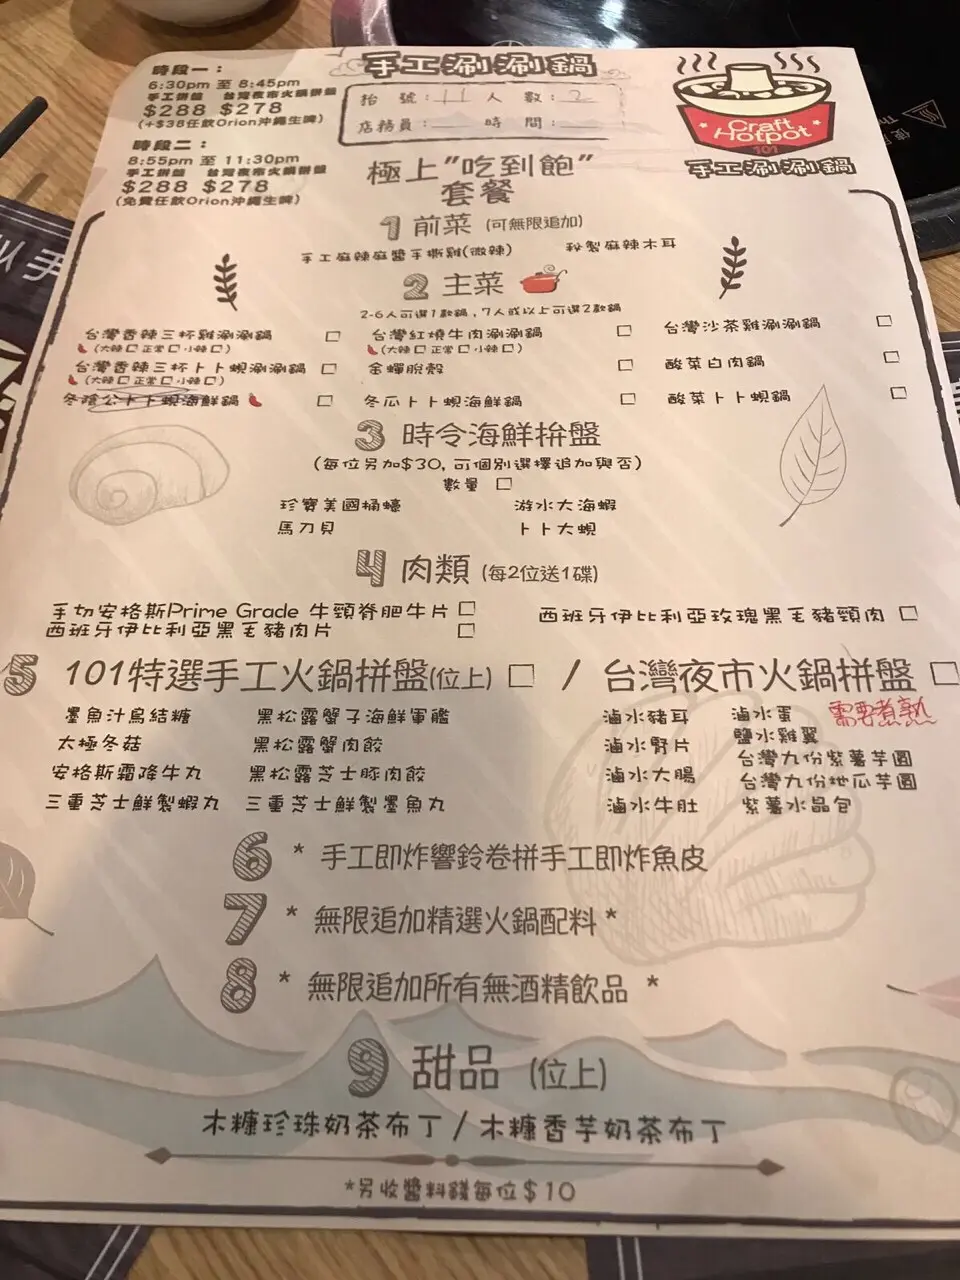 手工涮涮鍋
時段一：
6:30pm 至 8:45pm
手工拼盤 台灣夜市火鍋拼盤
$288 $278
(+$38任飲Orion沖繩生啤)
時段二：
8:55pm 至 11:30pm
手工拼盤 台灣夜市火鍋拼盤
$288 $278
(免費任飲Orion沖繩生啤)
枱 號： 11 人 數： 2
店務員： 時 間：
Craft
Hotpot
101
手工涮涮鍋
極上"吃到飽"
套餐
1 前菜 (可無限追加)
手工麻辣麻醬手撕雞(微辣) 秘製麻辣木耳
2 主菜
2-6人可選1款鍋，7人或以上可選2款鍋
台灣香辣三杯雞涮涮鍋 台灣紅燒牛肉涮涮鍋 台灣沙茶雞涮涮鍋
(大辣 正常 小辣) (大辣 正常 小辣)
台灣香辣三杯卜卜蜆涮涮鍋 金蟬脫殼 酸菜白肉鍋
(大辣 正常 小辣)
冬陰公卜卜蜆海鮮鍋 冬瓜卜卜蜆海鮮鍋 酸菜卜卜蜆鍋
3 時令海鮮拚盤
(每位另加$30, 可個別選擇追加與否)
數量
珍寶美國桶蠔 游水大海蝦
馬刀貝 卜卜大蜆
4 肉類 (每2位送1碟)
手切安格斯Prime Grade 牛頸脊肥牛片 西班牙伊比利亞玫瑰黑毛豬頸肉
西班牙伊比利亞黑毛豬肉片
5 101特選手工火鍋拼盤(位上) / 台灣夜市火鍋拼盤
墨魚汁烏結糖 黑松露蟹子海鮮軍艦 滷水豬耳 滷水蛋 需要煮熟
太極冬菇 黑松露蟹肉餃 滷水腎片 鹽水雞翼
安格斯霜降牛丸 黑松露芝士豚肉餃 滷水大腸 台灣九份紫薯芋圓
三重芝士鮮製蝦丸 三重芝士鮮製墨魚丸 滷水牛肚 台灣九份地瓜芋圓
紫薯水晶包
6 * 手工即炸響鈴卷拼手工即炸魚皮
7 * 無限追加精選火鍋配料 *
8 * 無限追加所有無酒精飲品 *
9 甜品 (位上)
木糠珍珠奶茶布丁 / 木糠香芋奶茶布丁
*另收醬料錢每位$10